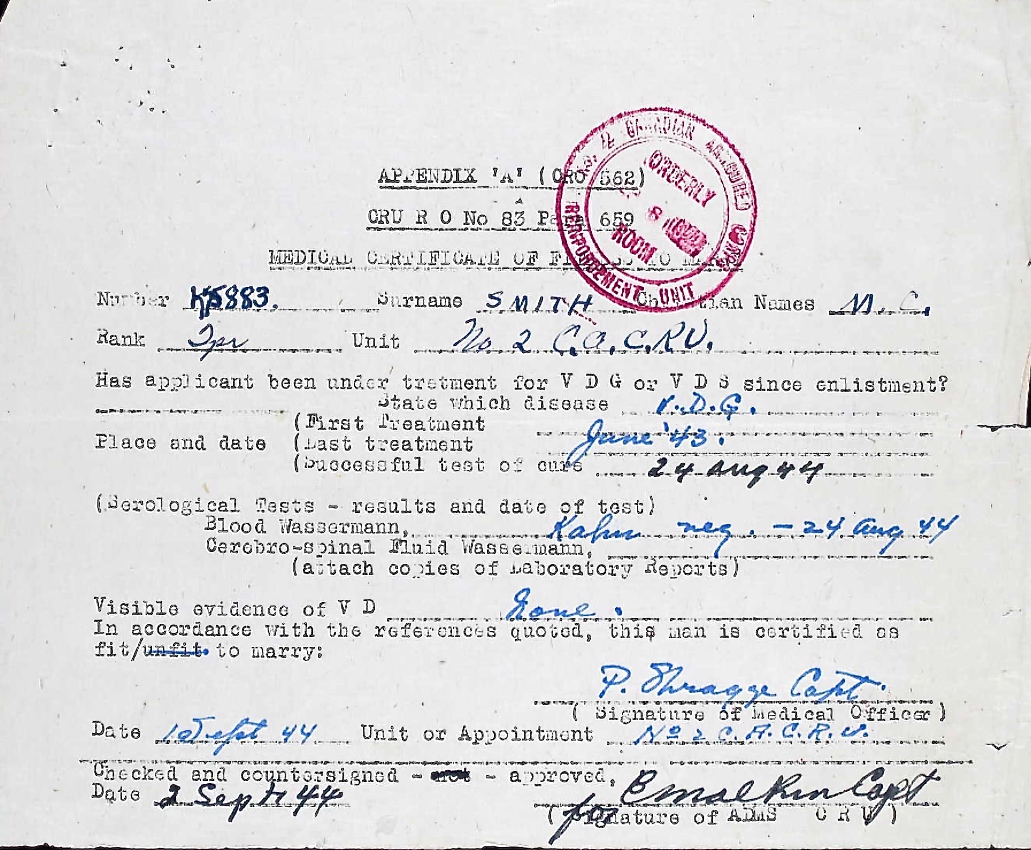 APPENDIX 'A' (CRO 562)
CRU R O No 83 Para 659
MEDICAL CERTIFICATE OF FITNESS TO MARRY
NO. 2 CANADIAN ARMOURED CORPS REINFORCEMENT UNIT
ORDERLY ROOM
Number K5883. Surname SMITH Christian Names M. C.
Rank Tpr Unit No 2 C.A.C.R.U.
Has applicant been under tretment for V D G or V D S since enlistment?
State which disease V.D.G.
(First Treatment
Place and date (Last treatment June '43.
(Successful test of cure 24 Aug 44
(Serological Tests - results and date of test)
Blood Wassermann, Kahn neg. - 24 Aug 44
Cerebro-spinal Fluid Wassermann,
(attach copies of Laboratory Reports)
Visible evidence of V D None.
In accordance with the references quoted, this man is certified as
fit/unfit to marry:
P. Shragge Capt.
( Signature of Medical Officer )
Date 1 Sept 44 Unit or Appointment No 2 C.A.C.R.U.
Checked and countersigned - - approved,
Date 2 Sept 44 Capt
for
(Signature of ADMS C R U )